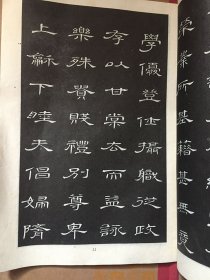 榮業所基籍甚無竟
學優登仕攝職從政
存以甘棠去而益詠
樂殊貴賤禮別尊卑
上龢下睦夫倡婦隋